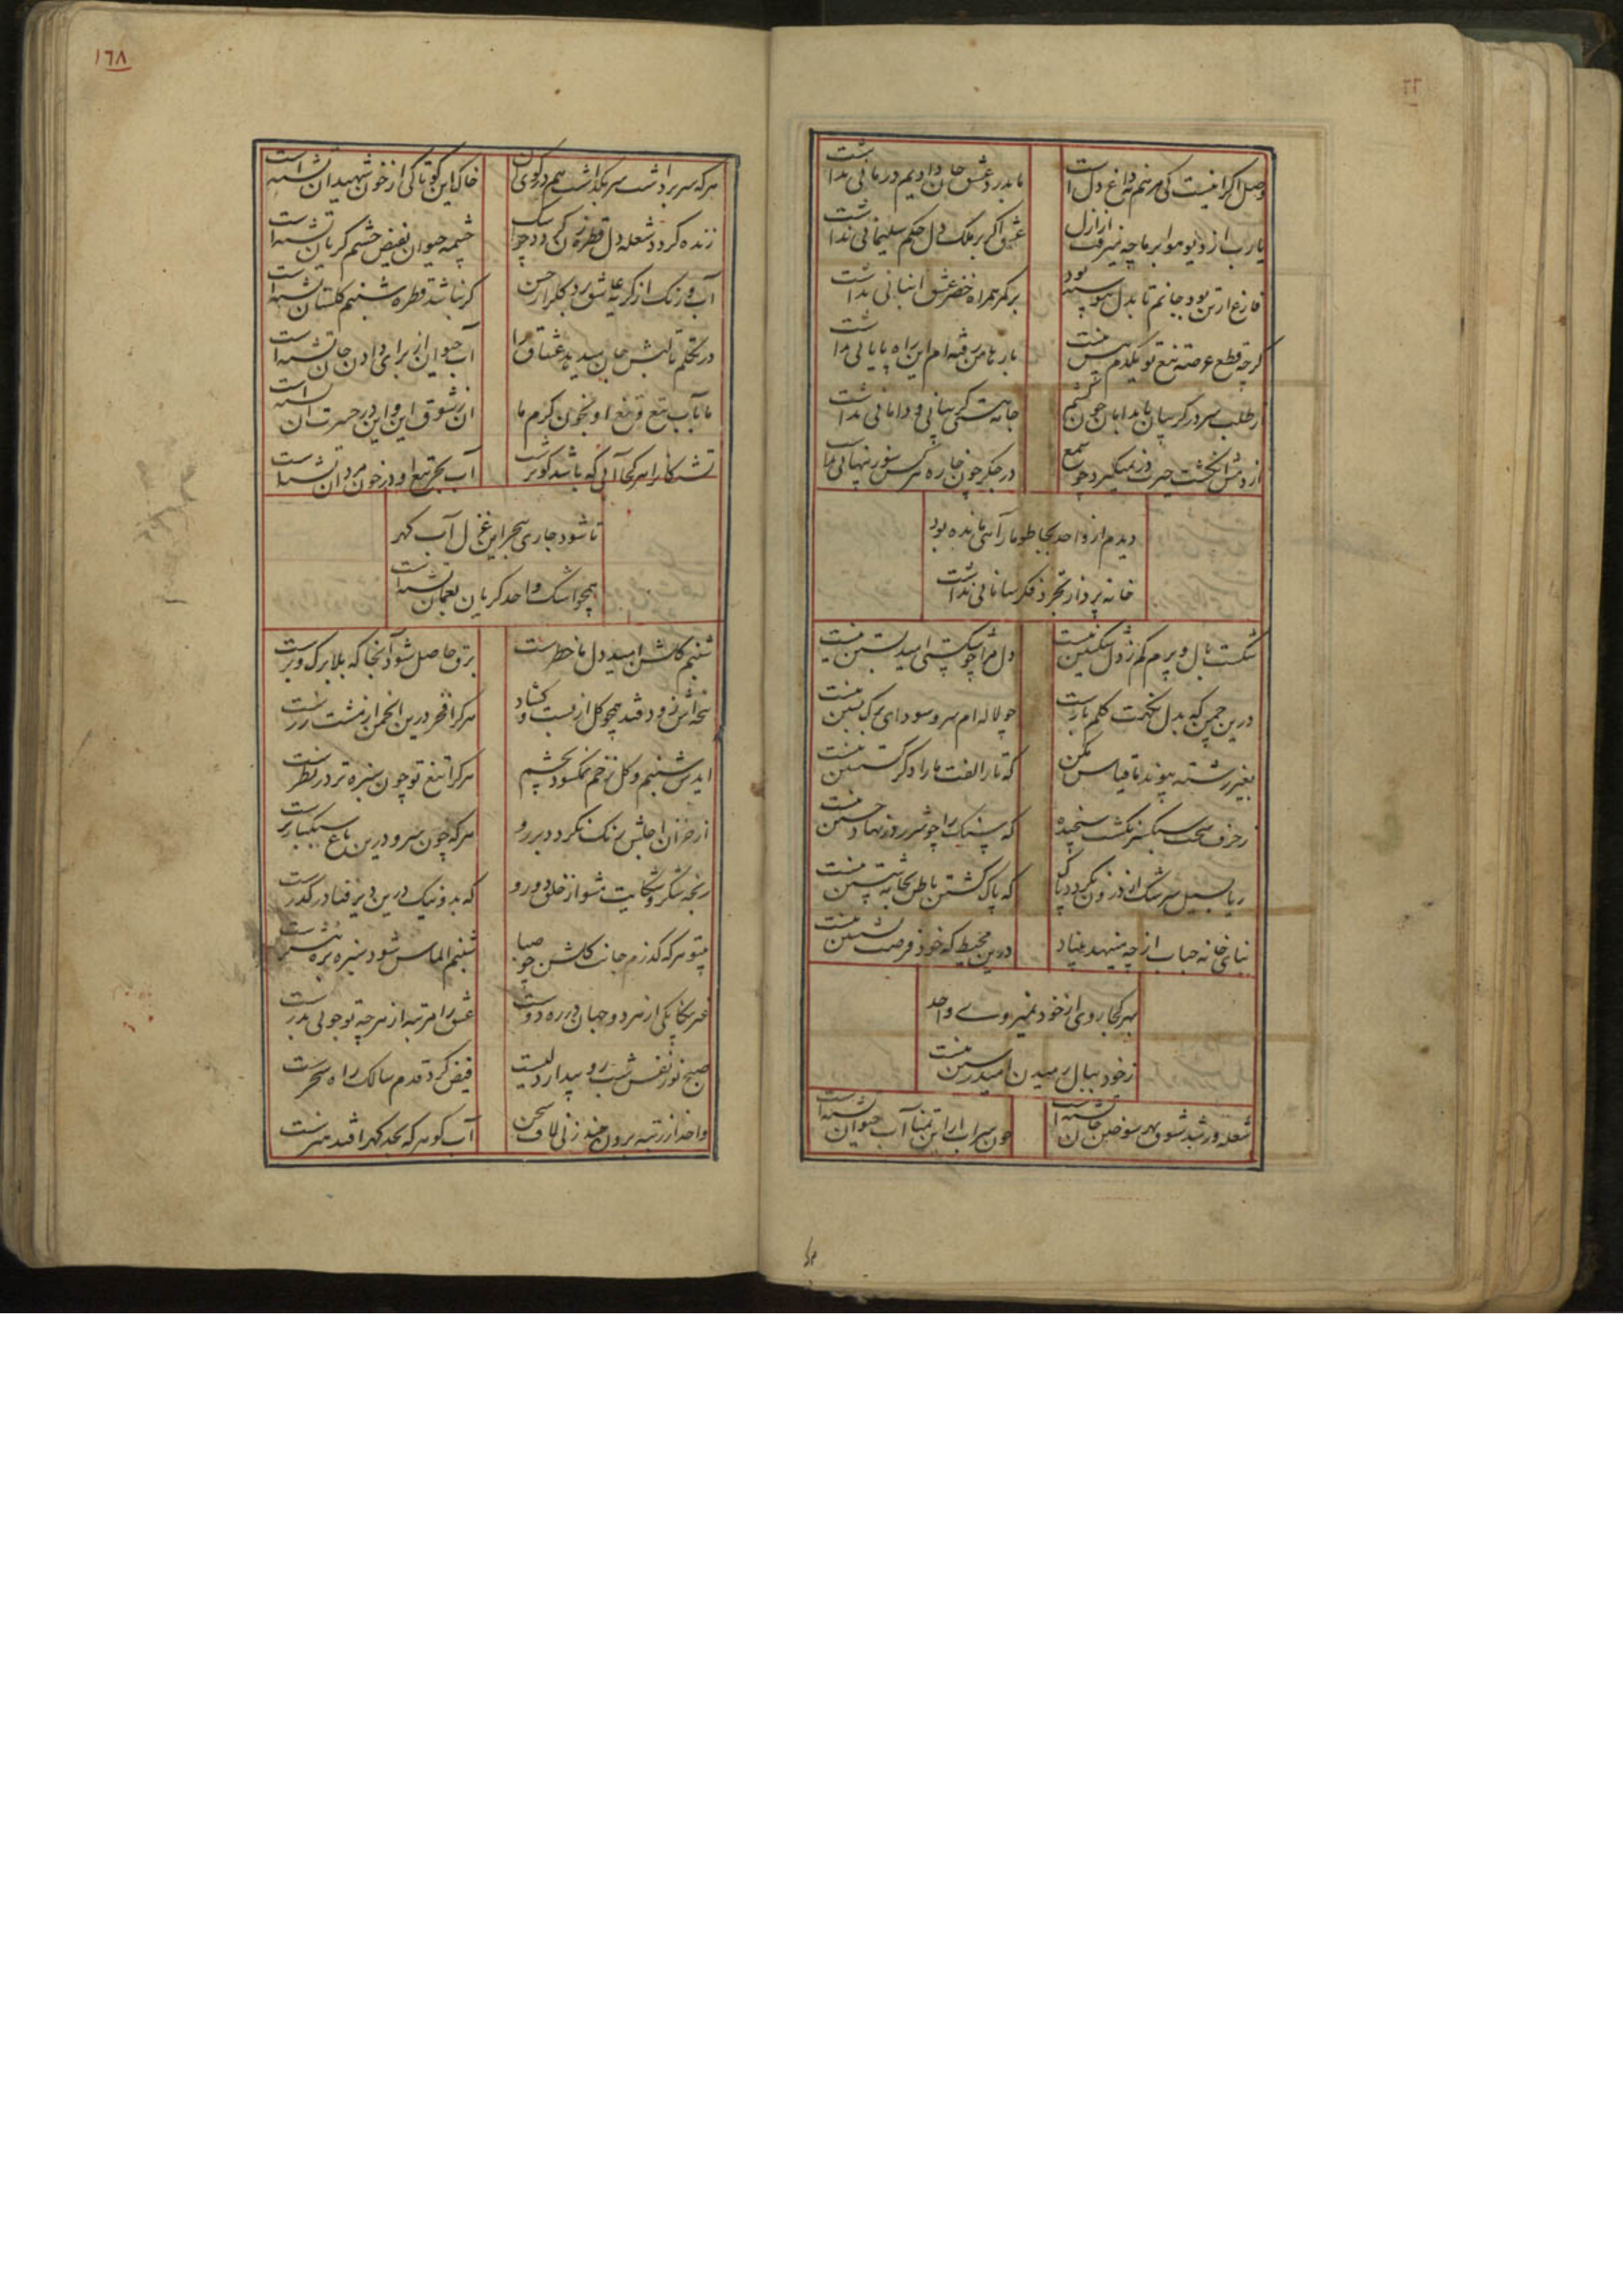 وصل اکر اینست کی مرهم نه داغ دل است
ما بدرد عشق جان دادیم درمانی نداشت
یارب از دیو هوا بر ما چه میرفت از ازل
عشق اکر بر ملک دل حکم سلیمانی نداشت
فارغ از تن بود جانم تا بدل پیوسته بود
همراه خضر عشق انبانی نداشت
کرچه قطع عرصه تیغ تو یکدم بیش نیست
بارها من رفته ام این راه پایانی نداشت
از طلب سر در کریبان پا بدامان چون کشم
جامه هستی کریبانی و دامانی نداشت
از دمش انکشت حیرت میکیرد چو شمع
در جکر چون خاره هر کس سوز پنهانی نداشت
دیدم از واحد بجا طومار آهی مانده بود
خانه پرداز تجرد فکر سامانی نداشت
شکست بال و پرم کم ز دل شکستن نیست
دل مرا چو شکستی امید بستن نیست
درین چمن که بدل نکهت کلم بارست
چو لاله ام سر و سودای برک بستن نیست
بغیر رشته پیوند ما قیاس مکن
که تار الفت ما را دکر کسستن نیست
ز حرف سخت سبکسر نکشت سنجیده
که سنک را چو شرر در نهاد جستن نیست
ریا بسیل سرشک از درون نکردد پاک
که پاک کشتن باطن بجامه شستن نیست
بنای خانه حباب از چه مینهد بنیاد
درین محیط که خود فرصت نشستن نیست
بهر کجا روی از خود نمیروی واحد
ز خود ببال رمیدن امید رستن نیست
شعله ور شد شوق بهر سوختن جان تشنه است
چون سراب ار این تمنا آب حیوان تشنه است
۱۶۸
هر که سر برداشت سر بکذاشت هم در کوی
خاک این کو تا کی از خون شهیدان تشنه است
زنده کردد شعله دل قطره زن کردد چو اشک
چشمه حیوان بفیض چشم کریان تشنه است
آب و رنک از کریه عاشق برد کلزار حسن
کر نباشد قطره شبنم کلستان تشنه است
در تکلم تا لبش جان میدهد عشاق را
آب حیوان از برای دادن جان تشنه است
ما بآب تیغ و تیغ او بخون کرم ما
آن ز شوق این و این در حسرت آن تشنه است
تشنکان را هر کجا آبی که باشد کوثر است
آب بحر تیغ او در خون مردان تشنه است
تا شود جاری بحر این غزل آب کهر
همچو اشک واحد کریان بعمان تشنه است
شبنم کلشن امید دل ما خطرست
برق حاصل شود آنجا که بلا برک و برست
پنجه اش زود فتد همچو کل از بست و کشاد
هر کرا فخر درین انجمن از مشت زرست
دیدن شبنم و کل زخم نمکسود بچشم
هر کرا تیغ تو چون سبزه تر در نظرست
از خزان جلش رنک نکردد بر رو
هر که چون سرو درین باغ سبکبارترست
رنجه شکر و شکایت مشو از خلق دو رو
که بد و نیک درین دیر فنا در کذرست
بیتو هر که کذرم جانب کلشن چو صبا
شبنم الماس شود سبزه تر نیشترست
غیر بیکانکی از هر دو جهان در ره دوست
عشق را مرتبه از هر چه تو جویی بدرست
صبح نور نفس شب رو بیدار دلیست
فیض کرد قدم سالک راه سحرست
واحد از رتبه برون چند زنی لاف سخن
آب کوهر که بحد کهر افتد هنرست